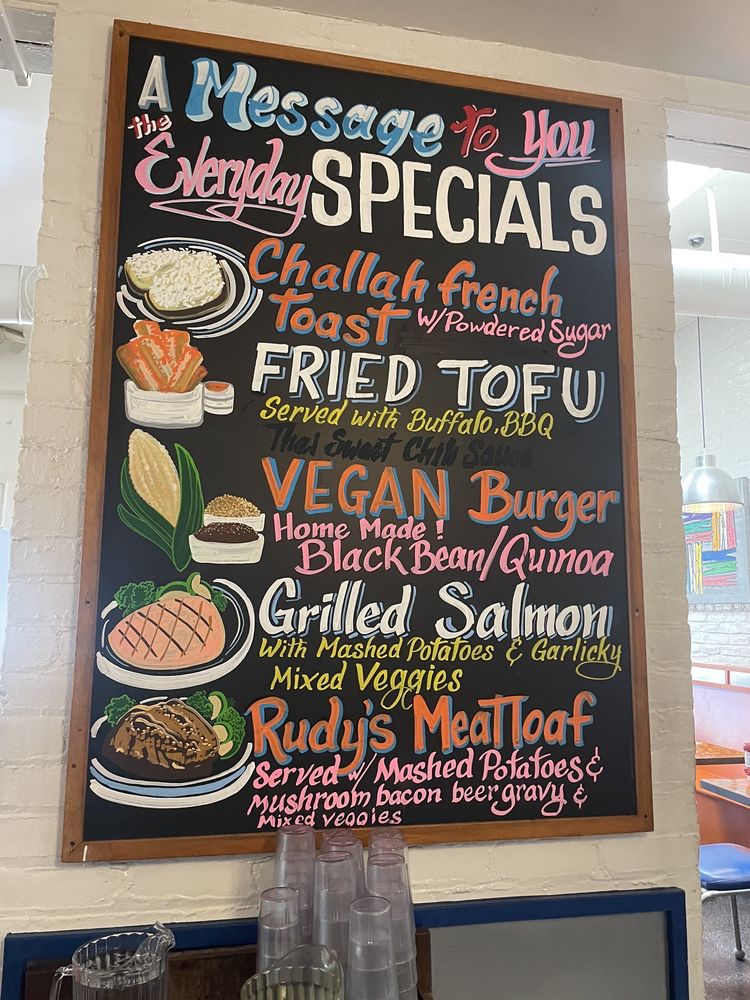 A Message To You
the Everyday SPECIALS
Challah french
toast w/Powdered Sugar
FRIED TOFU
Served with Buffalo, BBQ
Thai Sweet Chili Sauce
VEGAN Burger
Home Made!
Black Bean/Quinoa
Grilled Salmon
With Mashed Potatoes & Garlicky
Mixed Veggies
Rudy's Meatloaf
Served w/ Mashed Potatoes &
Mushroom bacon beer gravy &
Mixed veggies